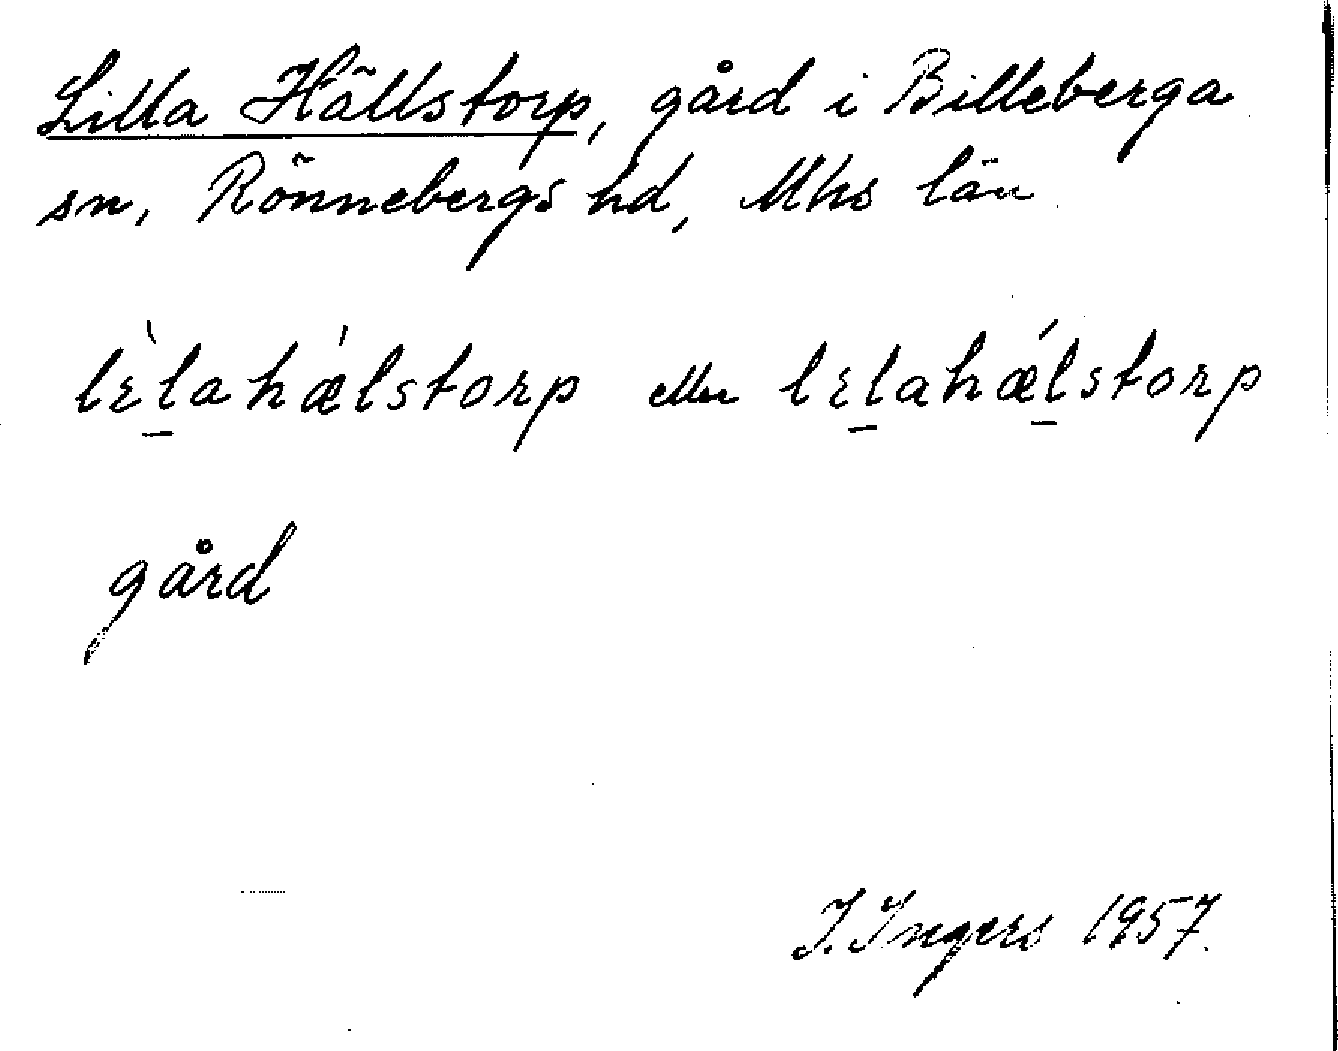 Lilla Hällstorp, gård i Billeberga
sn, Rönnebergs hd, Mhs län
lὲl̠ahǽlstorp eller lɛl̠ahǽl̠storp
gård
I. Ingers 1957.